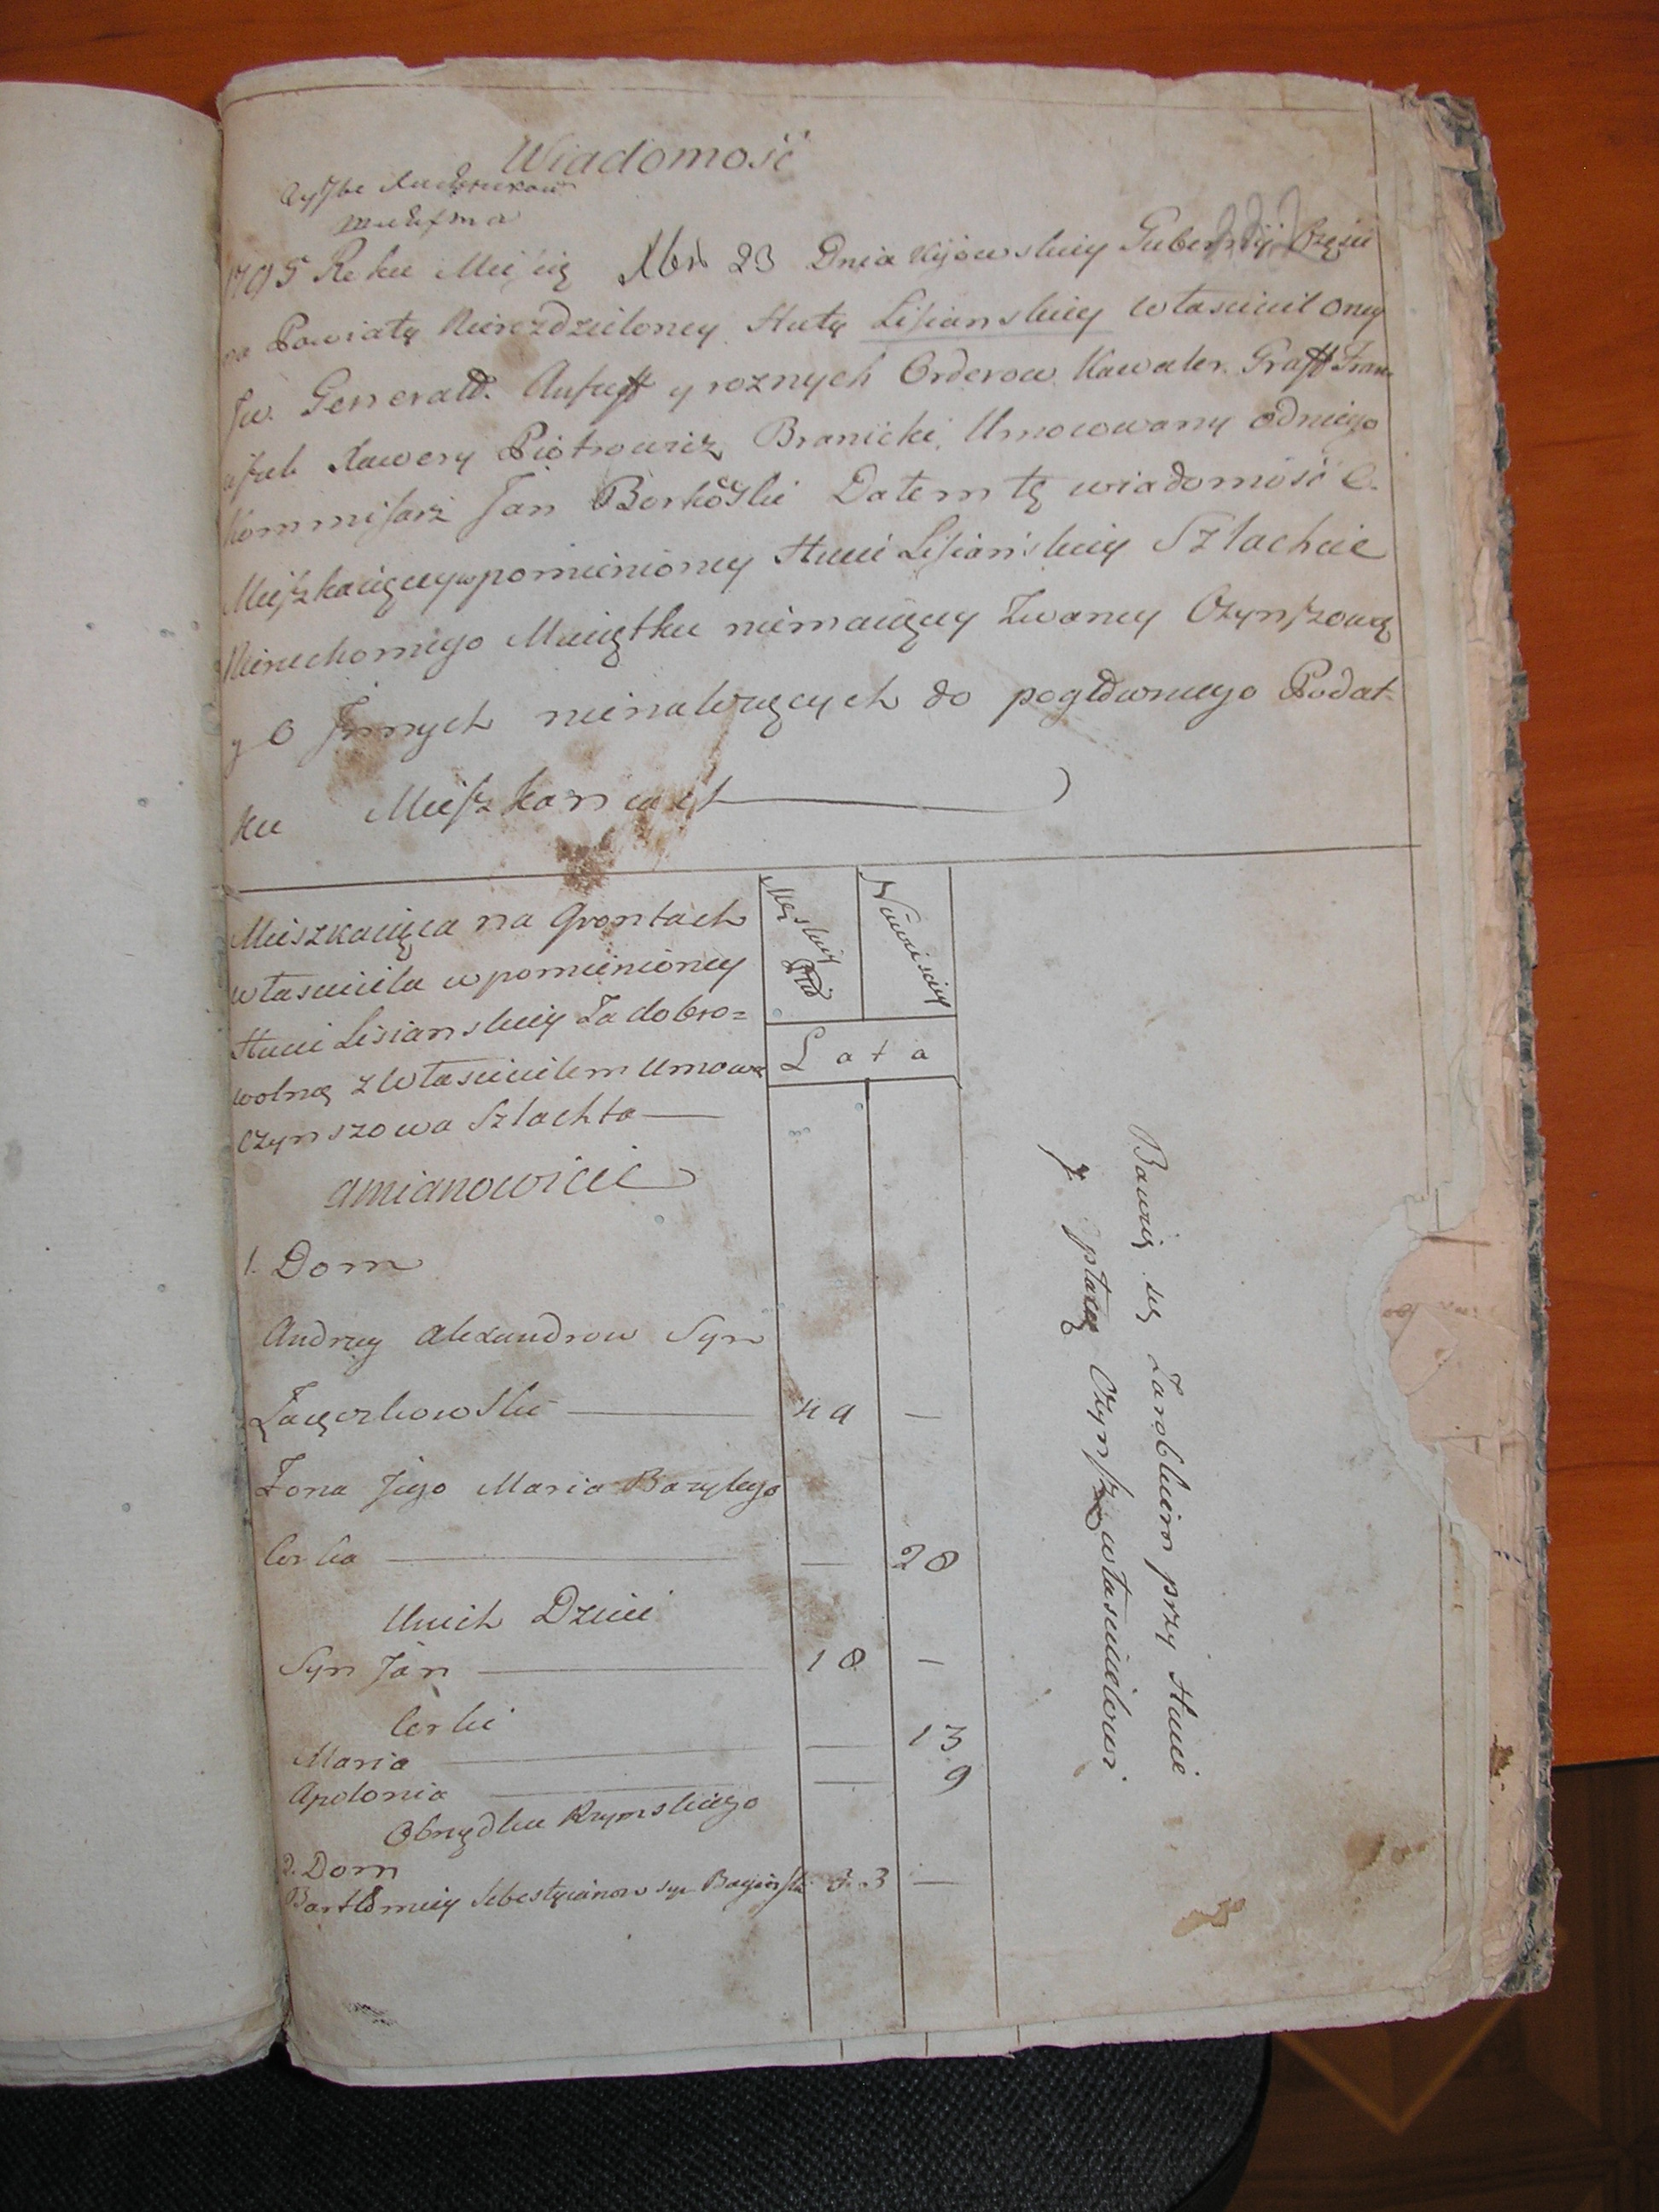 Wiadomość
1795 Roku Miesię Xbra 23 Dnia Kijowskiey Gubernij Częsci
na Powiaty Nierozdzieloney Huty Lisianskiey własciciel oney
Jw. Generalł. Anszeff y roznych Orderow Kawaler. Graff Fran
ciszek Xawery Piotrowicz Branicki, Umocowany odniego
Kommisarz Jan Borkoski Dałem tę wiadomość O.
Mieszkaiącey wpomienioney Hucie Lisianskiey Szlachcie
Nieruchomego Maiątku niemaiącey Zwaney Czynszową
y O Innych nienalerzących do pogłównego Podat
ku Mieszkancach
Mieszkaiąca na Grontach
własciciela w pomienioney
Hucie Lisianskiey Za dobro=
wolną z Własicielem Umową
Czynszowa Szlachta
Męskiey Płci
Niewisciey
Lata
amianowicie
1. Dom
Andrzey Alexandrow Syn
Zaięczkowski 49 —
Żona Jego Maria Bazylego
Corka — 28
Unich Dzieci
Syn Jan 18 —
Corki
Maria — 13
Apolonia — 9
Obrządku Rzymskiego
2. Dom
Bartłomiey Sebestyianow syn 33 —
Bawią się Zarobkiem przy Hucie
y płacą Czynsz własicielowi